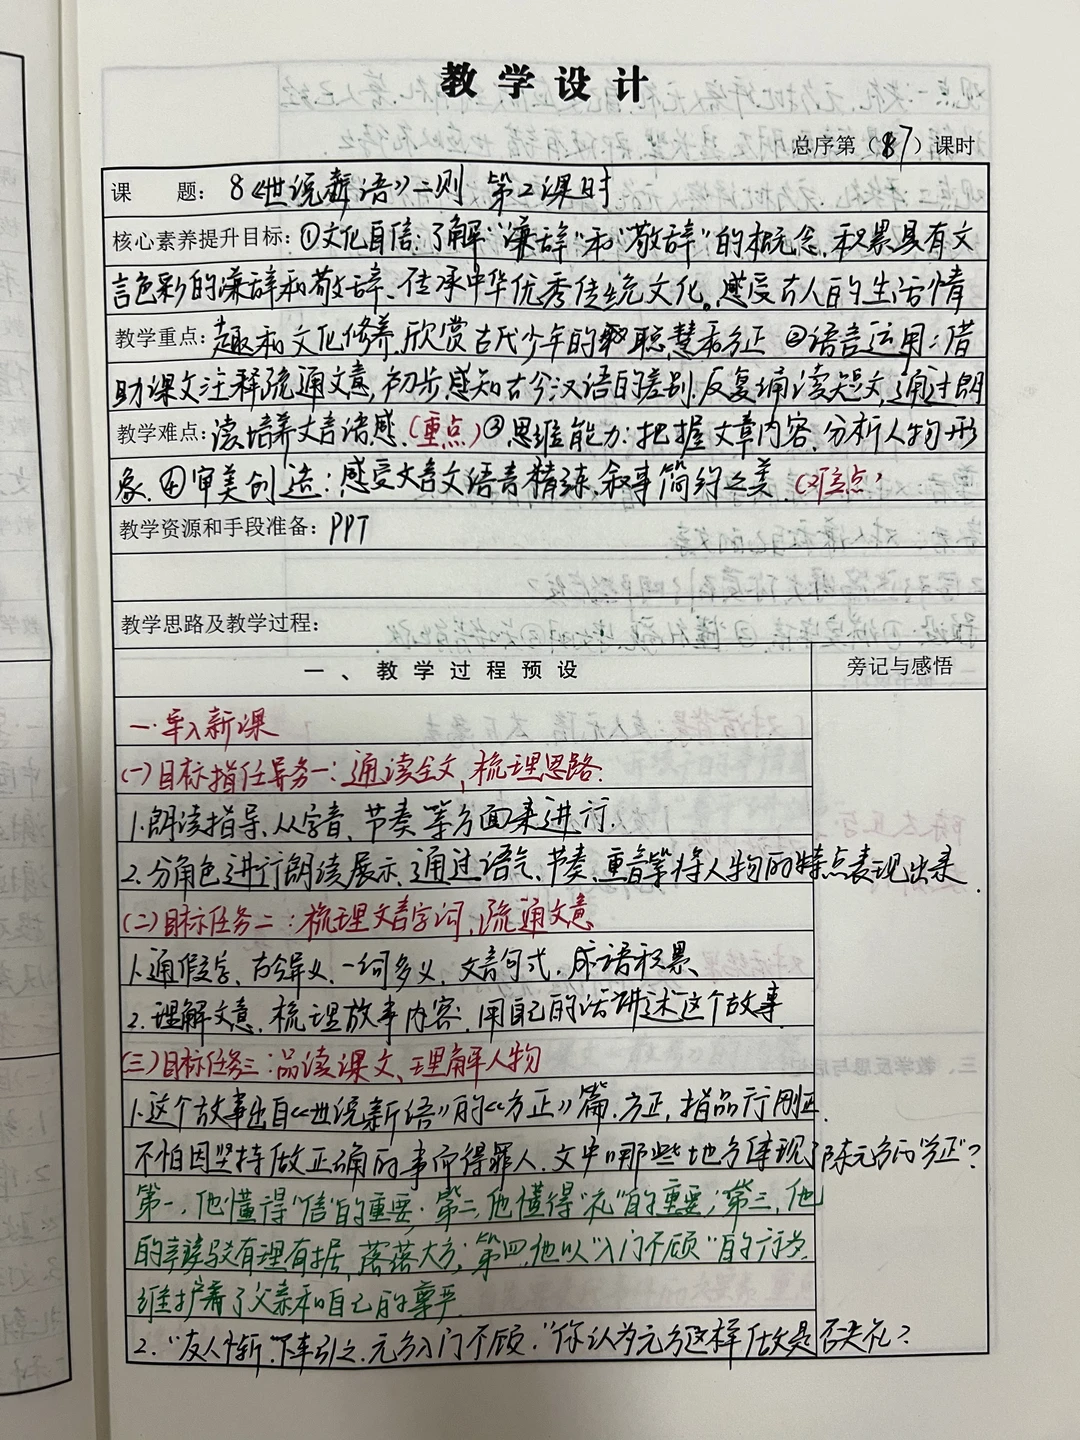 教学设计
总序第（87）课时
课 题：8《世说新语》二则 第2课时
核心素养提升目标：①文化自信：了解“谦辞”和“敬辞”的概念，积累具有文
言色彩的谦辞和敬辞、传承中华优秀传统文化。感受古人的生活情
教学重点：趣和文化修养，欣赏古代少年的聪慧和方正 ②语言运用：借
助课文注释疏通文意，初步感知古今汉语的差别，反复诵读短文，通过朗
教学难点：读培养文言语感。(重点)③思维能力：把握文章内容，分析人物形
象。④审美创造：感受文言文语言精练、叙事简约之美。(难点)
教学资源和手段准备：PPT
教学思路及教学过程：
一、教学过程预设 旁记与感悟
一.导入新课
(一)目标指任务一：通读全文，梳理思路.
1.朗读指导，从字音、节奏等方面来进行.
2.分角色进行朗读展示，通过语气、节奏、重音等将人物的特点表现出来.
(二)目标任务二：梳理文言字词，疏通文意
1.通假字、古今异义、一词多义、文言句式、成语积累、
2.理解文意，梳理故事内容，用自己的话讲述这个故事
(三)目标任务三：品读课文、理解人物
1.这个故事出自《世说新语》的《方正》篇.方正，指品行刚正，
不怕因坚持做正确的事而得罪人.文中哪些地方体现了陈元方的“方正”？
第一，他懂得“信”的重要；第二，他懂得“礼”的重要；第三，他
的辩驳有理有据，落落大方；第四，他以“入门不顾”的行为，
维护着了父亲和自己的尊严
2.“友人惭，下车引之，元方入门不顾.”你认为元方这样做是否失礼？